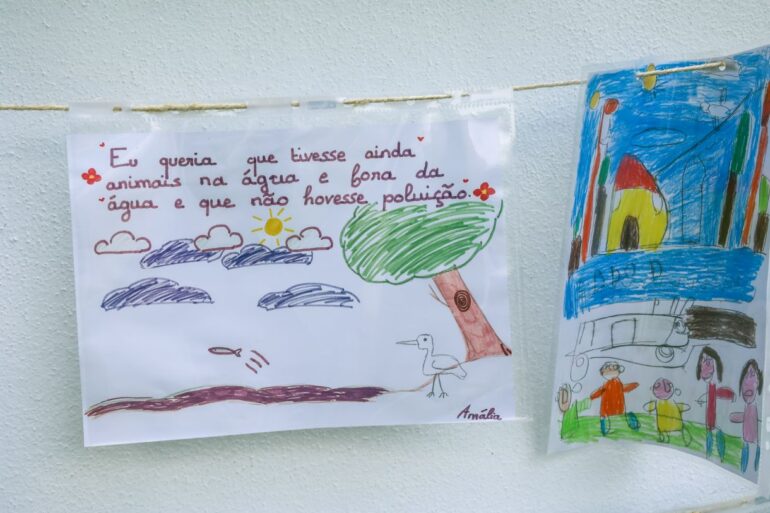 Eu queria que tivesse ainda
animais na água e fora da
água e que não hovesse poluição.
Amália